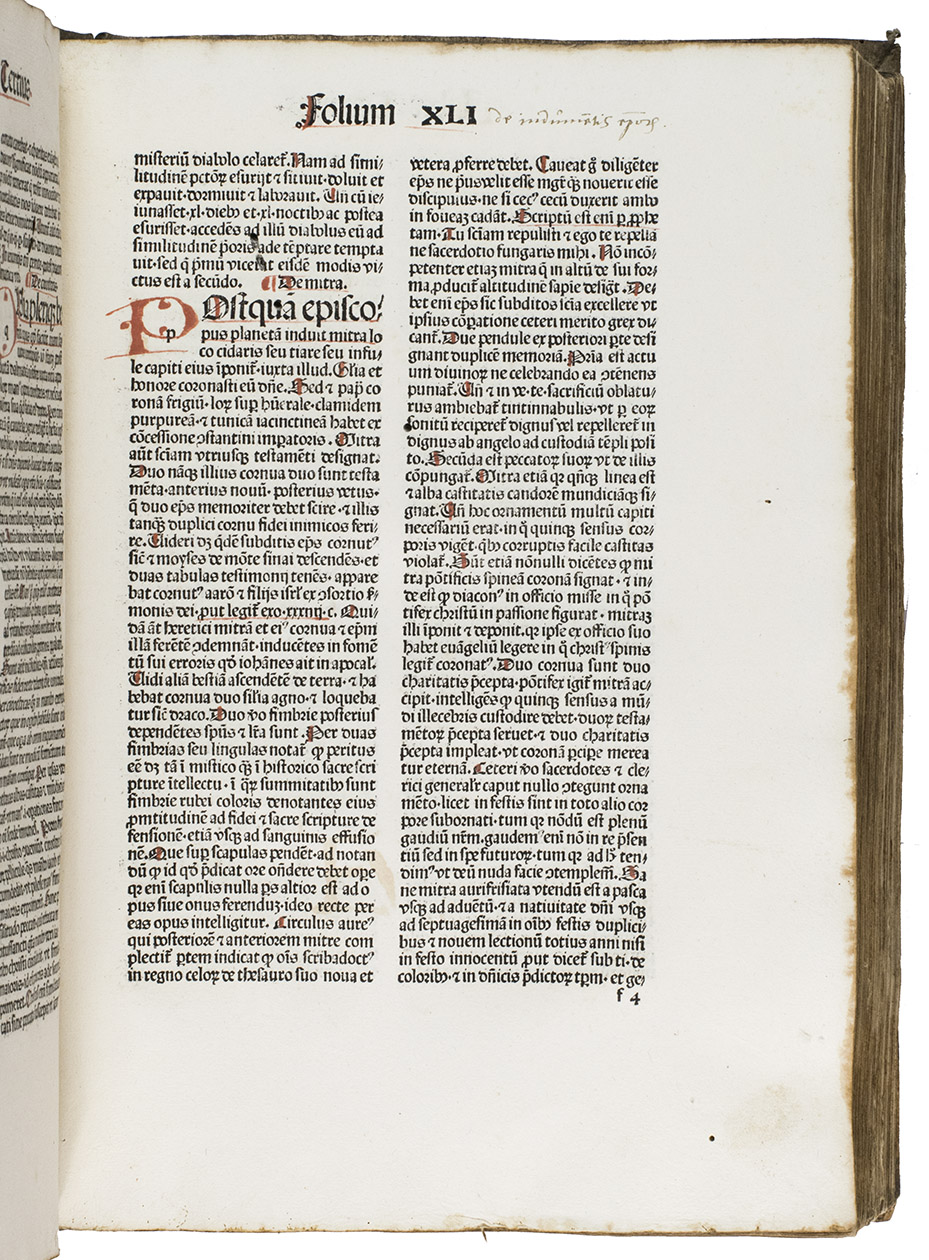 Folium XLI
misteriũ diabolo celaret᷑. Nam ad simi⸗
litudinẽ pctõꝝ esurijt ⁊ sitiuit· doluit et
expauit· dormiuit ⁊ laborauit. Uñ cũ ie⸗
iunasset·xl·dieb⁹ et·xl·noctib⁹ ac postea
esurisset· accedẽs ad illũ diabolus eũ ad
similitudinẽ p̃oris ade tẽptare tempta
uit· sed q̃ p̃mũ vicerat eisdẽ modis vi⸗
ctus est a secũdo. ¶ De mitra.
POstquã episco⸗
pus planetã induit mitra lo
co cidaris seu tiare seu infu⸗
le capiti eius ĩponit᷑· iuxta illud. Gl̃ia et
honore coronasti eũ dñe. Sed ⁊ pap̃ co
ronã frigiũ· loꝝ suꝑ hũerale· clamidem
purpureã· ⁊ tunicã iacinctineã habet ex
cõcessione ꝯstantini imꝑatoris. Mitra
aũt sciam vtriusqꝫ testamẽti designat᷑.
Duo nãqꝫ illius cornua duo sunt testa
mẽta· anterius nouũ· posterius vetus·
q̃ duo ep̃s memoriter debet scire· ⁊ illis
tanqꝫ duplici cornu fidei inimicos feri⸗
re. Uideri dꝫ qdẽ subditis ep̃s cornut⁹
sic̃ ⁊ moyses de mõte sinai descendẽs· et
duas tabulas testimonij tenẽs· appare
bat cornut⁹ aarõ ⁊ filijs isr̃l ex ꝯsortio s̃⸗
monis dei· ꝓut legit᷑ exo·xxxiiij·c. Qui⸗
dã añt heretici mitrã et ei⁹ cornua ⁊ ep̃m
illã ferẽtẽ ꝯdemnãt· inducẽtes in fomẽ
tũ sui erroris qd̃ iohãnes ait in apocal᷑.
Uidi aliã bestiã ascendẽtẽ de terra· ⁊ ha
bebat cornua duo sil̃ia agno· ⁊ loqueba
tur sic̃ draco. Duo ṽo fimbrie posterius
dependẽtes sp̃us ⁊ l̃ra sunt. Per duas
fimbrias seu lingulas notat᷑ ꝙ peritus
eẽ dꝫ tã ĩ mistico qꝫ ĩ historico sacre scri
pture ĩtellectu· ĩ q̃ꝝ summitatib⁹ sunt
fimbrie rubei coloris denotantes eius
ꝓmtitudinẽ ad fidei ⁊ sacre scripture de
fensionẽ· etiã vsqꝫ ad sanguinis effusio
nẽ. Que suꝑ scapulas pendẽt· ad notan
dũ ꝙ id qd̃ p̃dicat ore oñdere debet ope
qꝛ eni scapulis nulla ꝑs altior est ad o
pus siue onus ferenduꝫ· ideo recte per
eas opus intelligitur. Circulus aure⁹
qui posteriorẽ ⁊ anteriorem mitre com
plectit᷑ ꝑtem indicat ꝙ oĩs scriba doct⁹
in regno celoꝝ de thesauro suo noua et
vetera ꝓferre debet. Caueat g̃ diligẽter
ep̃s ne p̃us velit esse mgr̃ qꝫ nouerit esse
discipulus· ne si cec⁹ cecũ duxerit ambo
in foueaꝫ cadãt. Scriptũ est eni ꝑ ꝓphe
tam. Tu sciam repulisti ⁊ ego te repellã
ne sacerdotio fungaris mihi. Nõ incõ⸗
petenter etiaꝫ mitra q̃ in altũ de sui for⸗
ma ꝓducit᷑ altitudinẽ sapie desigt᷑. De⸗
bet eni ep̃s sic subditos scia excellere vt
ipsius cõꝑatione ceteri merito grex di⸗
cant᷑. Due pendule ex posteriori ꝑte desi
gnant duplicẽ memoriã. Pr̃ia est actu
um diuinoꝝ ne celebrando ea ꝯtenens
puniat᷑. Uñ ⁊ in ve·te·sacrificiũ oblatu⸗
rus ambiebat᷑ tintinnabulis· vt ꝑ eoꝝ
sonitũ reciperet᷑ dignus vel repelleret᷑ in
dignus ab angelo ad custodiã tẽpli posi
to. Secũda est peccatoꝝ suoꝝ vt de illis
cõpungat᷑. Mitra etiã qꝛ qñqꝫ linea est
⁊ alba castitatis candorẽ mundiciãqꝫ si⸗
gnat. Uñ hoc ornamentũ multũ capiti
necessariũ erat· in q̃ quinqꝫ sensus cor⸗
poris vigẽt· qb⁹ corruptis facile castitas
violat᷑. Sũt etiã nõnulli dicẽtes ꝙ mi
tra põtificis spineã coronã signat· ⁊ in⸗
de est ꝙ diacon⁹ in officio misse in q̃ põ
tifex christũ in passione figurat· mitraꝫ
illi ĩponit ⁊ deponit· qꝛ ipse ex officio suo
habet euãgeliũ legere in q̃ christ⁹ spinis
legit᷑ coronat⁹. Duo cornua sunt duo
charitatis p̃cepta· põtifex igit᷑ mitrã ac⸗
cipit· intelligẽs ꝙ quinqꝫ sensus a mũ⸗
di illecebris custodire debet· duoꝝ testa⸗
mẽtoꝝ p̃cepta seruet· ⁊ duo charitatis
p̃cepta impleat· vt coronã ꝑcipe merea
tur eternã. Ceteri ṽo sacerdotes ⁊ cle⸗
rici generalr̃ caput nullo ꝯtegunt orna
mẽto· licet in festis sint in toto alio cor
pore subornati· tum qꝛ nõdũ est plenũ
gaudiũ nr̃m· gaudem⁹ eni nõ in re p̃sen
tiũ sed in spe futuroꝝ· tum qꝛ ad h⁹ ten⸗
dim⁹ vt deũ nuda facie ꝯtemplem᷑. Sa
ne mitra aurifrisiata vtendũ est a pasca
vsqꝫ ad aduẽtũ· ⁊ a natiuitate dñi vsqꝫ
ad septuagesimã in oĩb⁹ festis duplici⸗
bus ⁊ nouem lectionũ totius anni nisi
in festo innocentũ ꝓut dicet᷑ sub ti·de
colorib⁹· ⁊ in dñicis p̃dictoꝝ tꝑm· et ge⸗
f 4